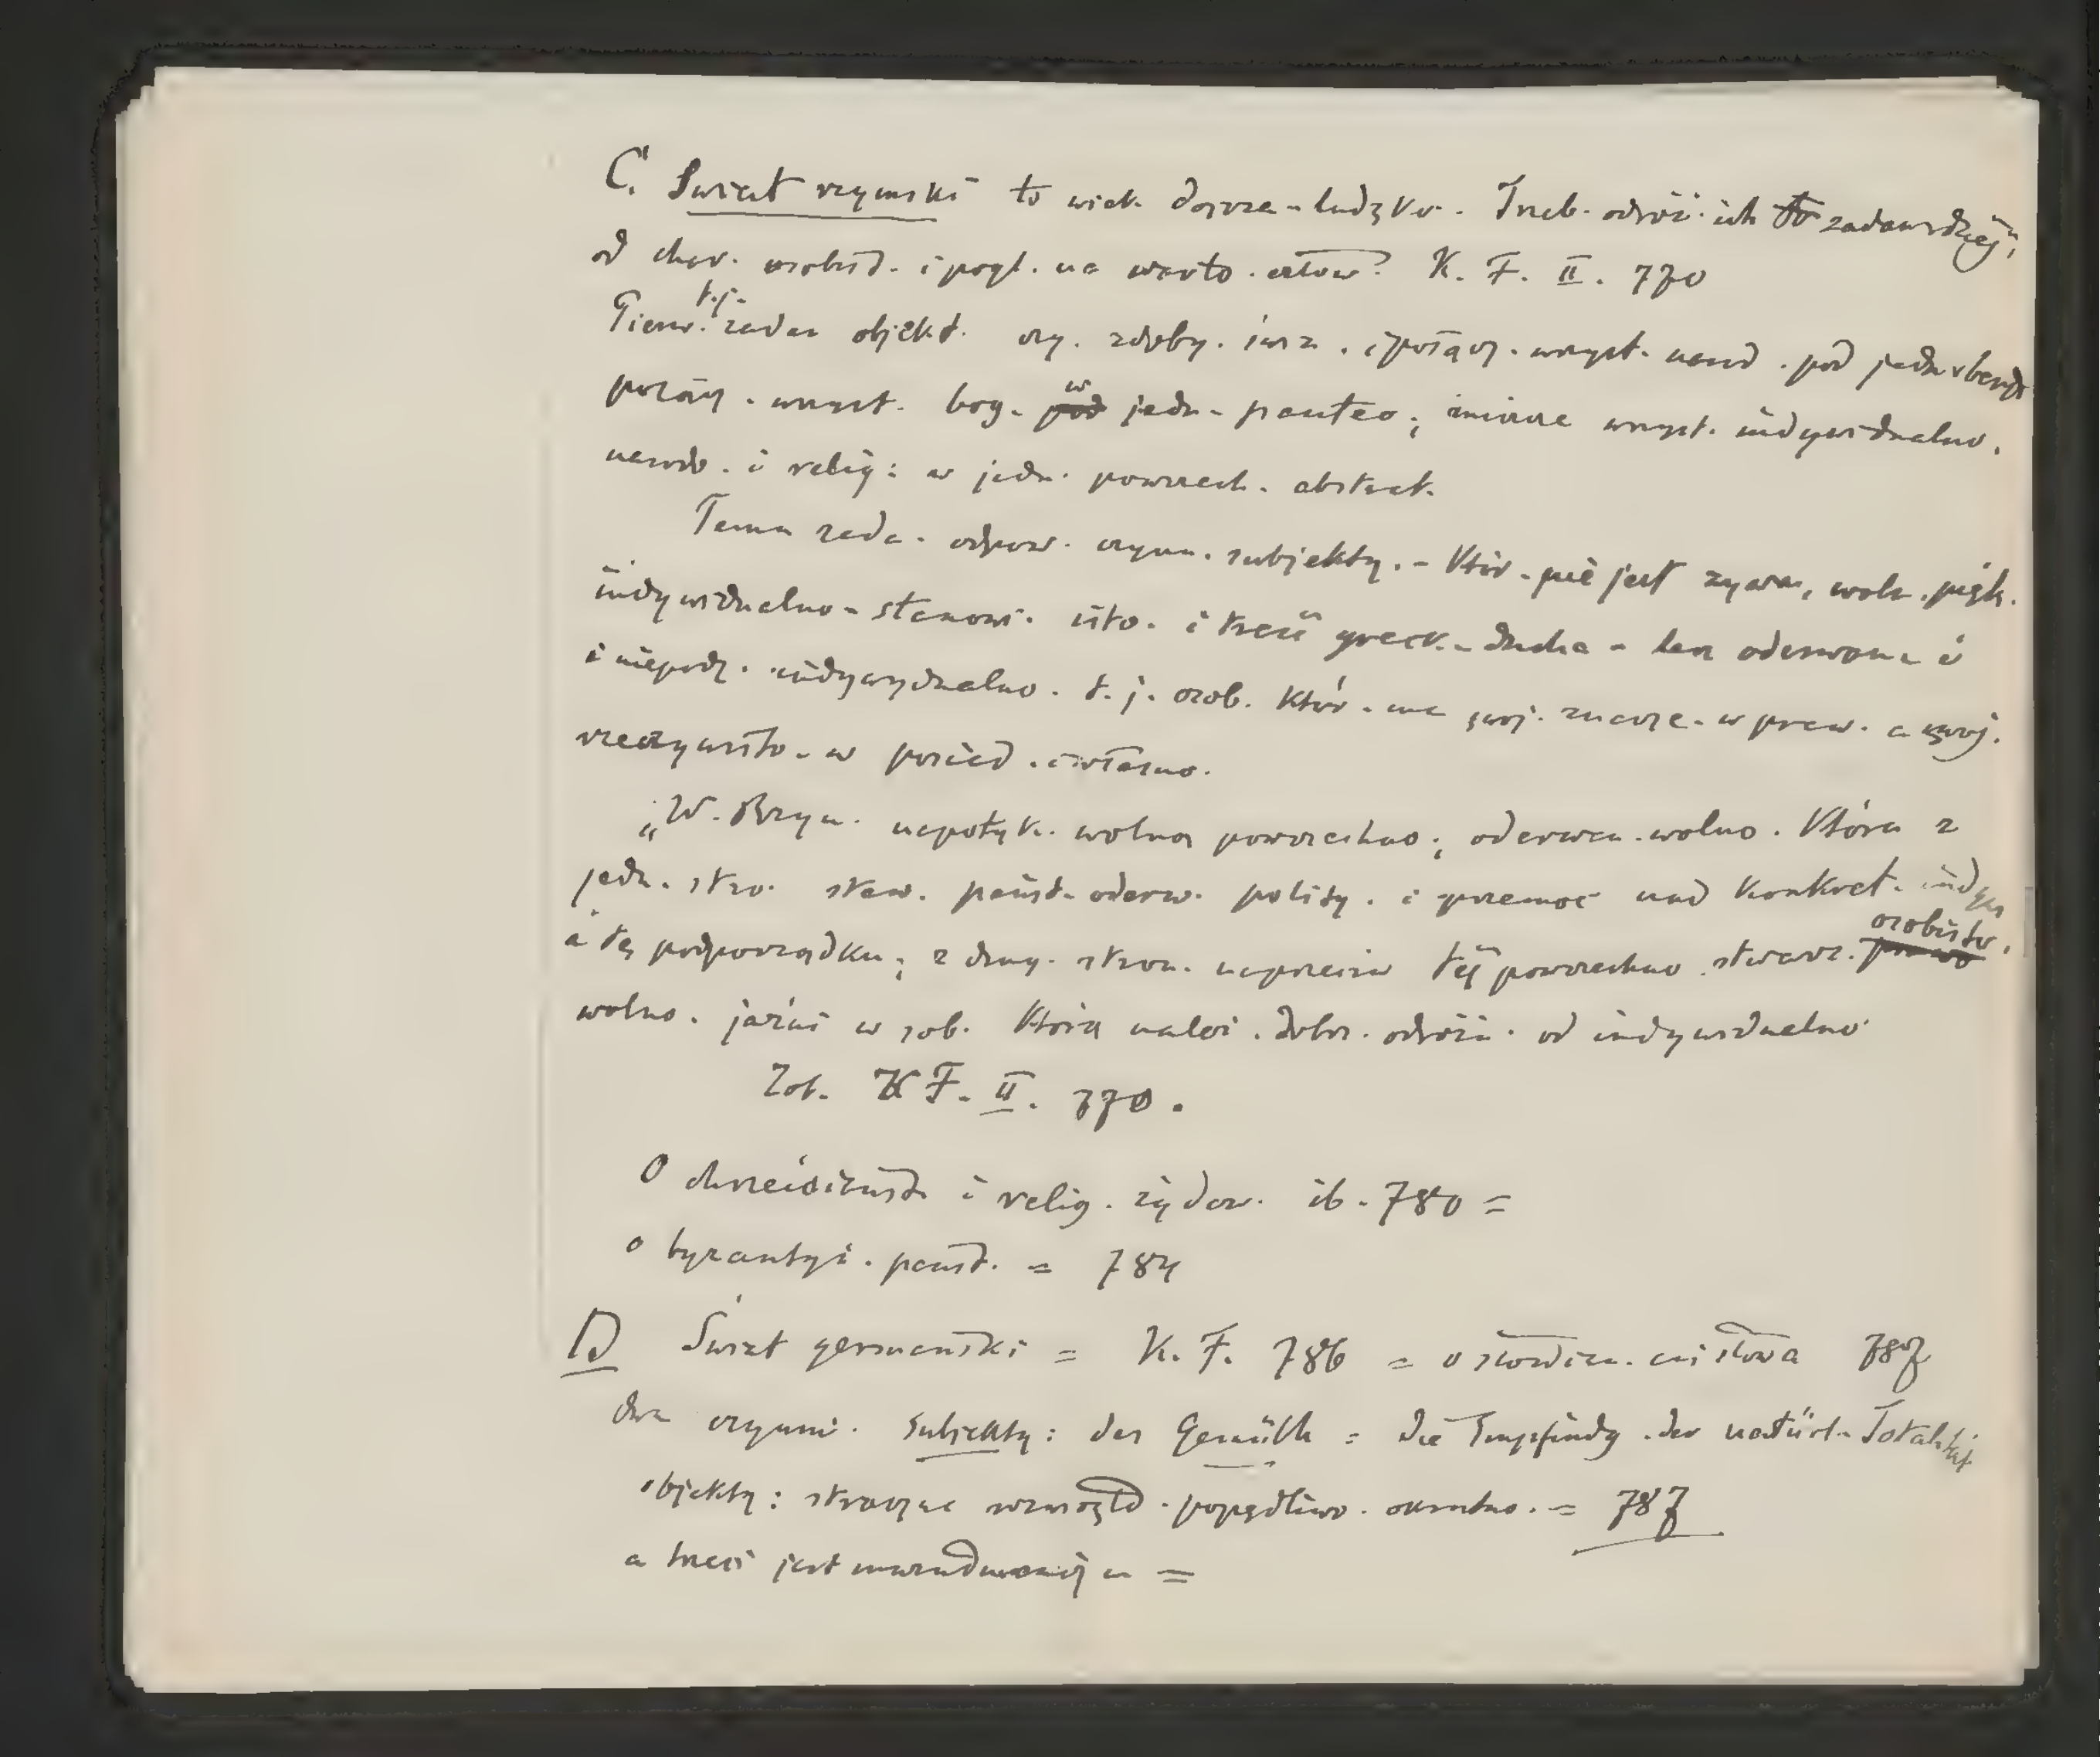 C. Świat rzymski to wiek dojrza. ludzko. Trzeb. odróż. ich zadan
od char. osobist. i pogl. na warto. K. F. II. 770
Pierw. t.j. zadan objekt. czy. zdoby. świ. i połącz. wszyst. narod. pod jedn. 
połącz. wszyst. bog. w jedn. panteo; wszyst. indywidualno.
narodo. i relig: w jedn. powszech. abstrak.
Temu zada. odpow. czynn. subjekty. – Któr. nie jest żywa, woln. pięk.
indywidualno – stanowi. isto. i treść greck. ducha – lecz oderwana i
i niepodz. indywydualno. t. j. osob. Któr. ma swoj. znacze. w praw. a swoj.
rzeczywisto. w posiad. własno.
„W. Rzym. napotyk. wolną powszechno; oderwan. wolno. Która z
jedn. stro. staw. państ. oderw. polity. i przemoc nad Konkret. indyw
a tę podporządku; z drug. stron. naprzeciw téj powszechno. stwarz. osobisto.
wolno. jaźni w sob. Którą należ. dobr. odróżn. od indywidualno
Zob. K F. II. 770.
O chrześciaństw i relig. żydow. ib. 780 =
o byzantyń. państ. = 784
D Świat germański = K. F. 786 = o słowian. 787
dwa czynni. subjekty: das Gemüth = die Empfindg. der natürl. Totalität
objekty: popędliwo. okrutno. = 787
a treść jest =